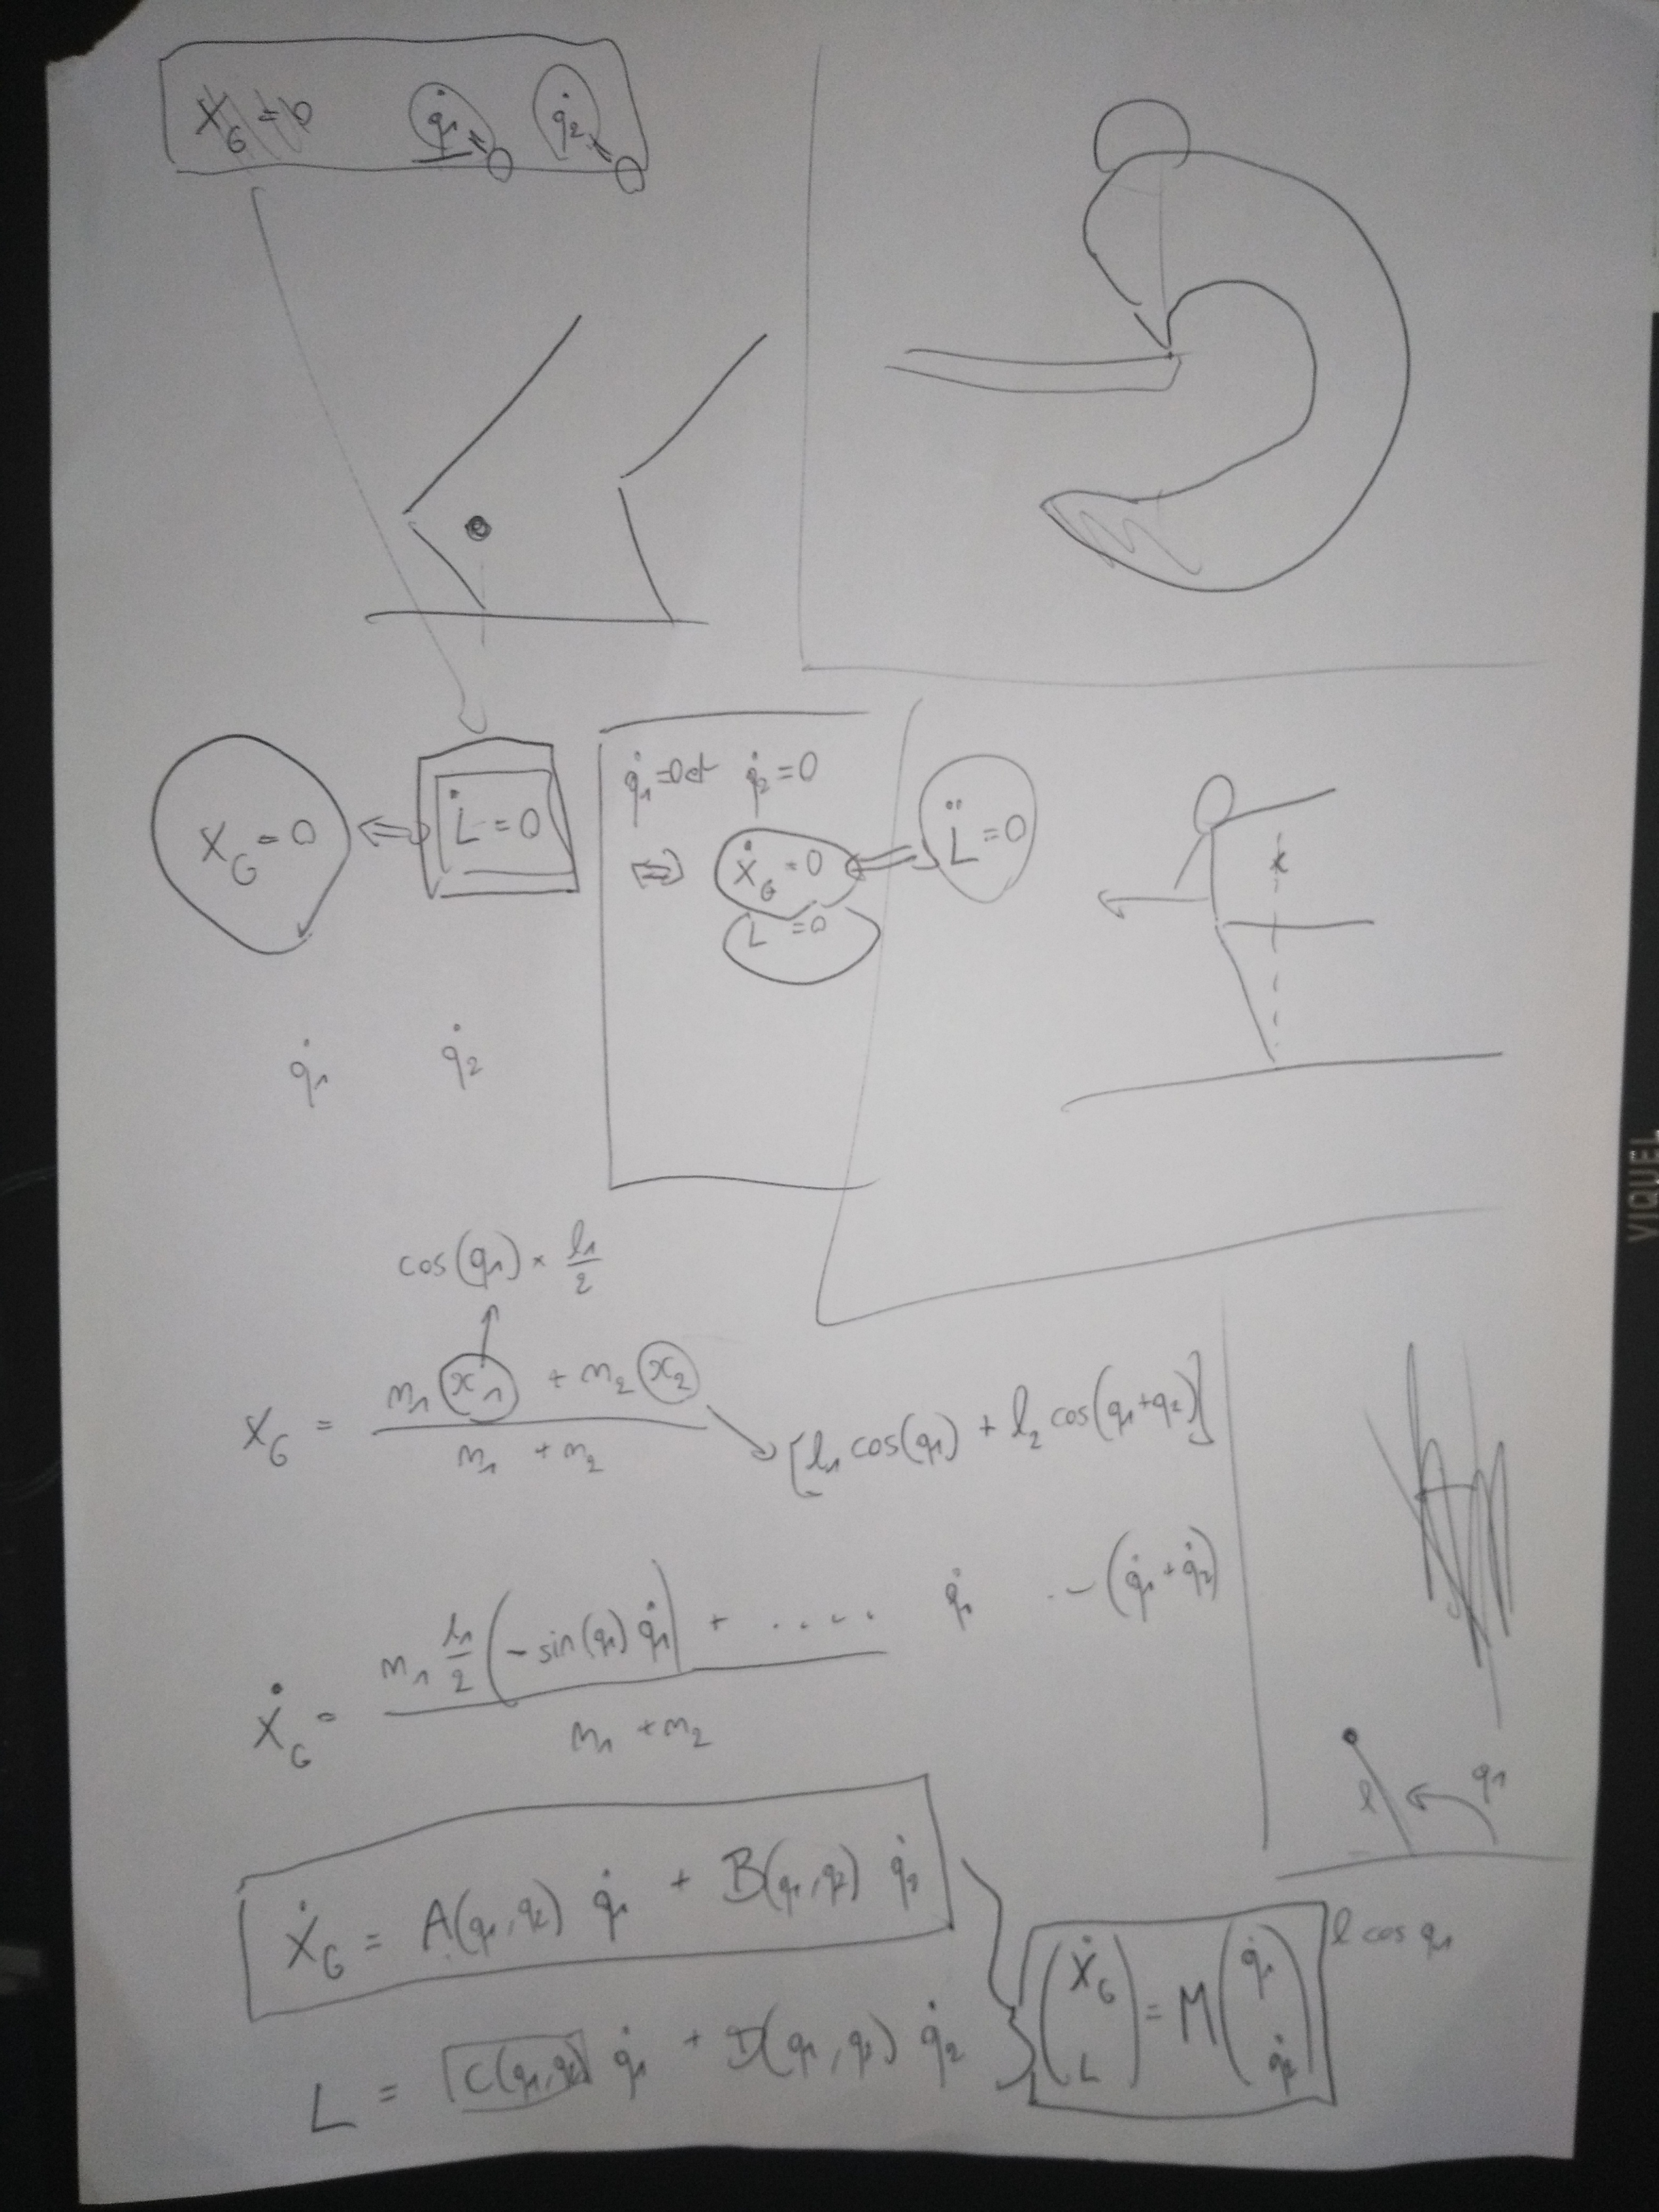 X_G = 0   q̇₁ = 0   q̇₂ = 0
X_G = 0 ⇔ L̇ = 0
q̇₁ = 0 et q̇₂ = 0
⇔ Ẋ_G = 0 ⇔ L̈ = 0
L = 0
q̇₁   q̇₂
cos(q₁) × l₁/2
X_G = (m₁ x₁ + m₂ x₂) / (m₁ + m₂)   [l₁ cos(q₁) + l₂ cos(q₁+q₂)]
Ẋ_G = (m₁ l₁/2 (-sin(q₁) q̇₁) + .....) / (m₁ + m₂)   q̇₁   ..- (q̇₁ + q̇₂)
l   q₁
Ẋ_G = A(q₁,q₂) q̇₁ + B(q₁,q₂) q̇₂
l cos q₁
L = C(q₁,q₂) q̇₁ + D(q₁,q₂) q̇₂
(Ẋ_G L) = M (q̇₁ q̇₂)
VIQUEL